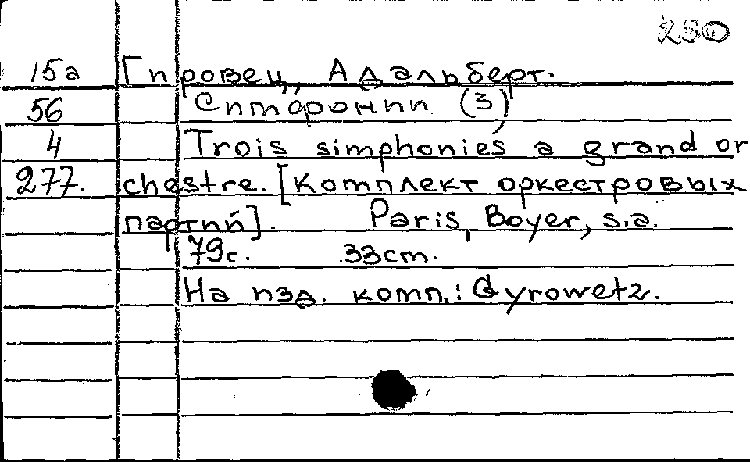 250
15а Гировец, Адальберт.
56 Симфонии (3)
4 Trois simphonies a grand or
277. chestre. [Комплект оркестровых
партий]. Paris, Boyer, s.a.
79с. 33cm.
На изд. комп.: Gyrowetz.